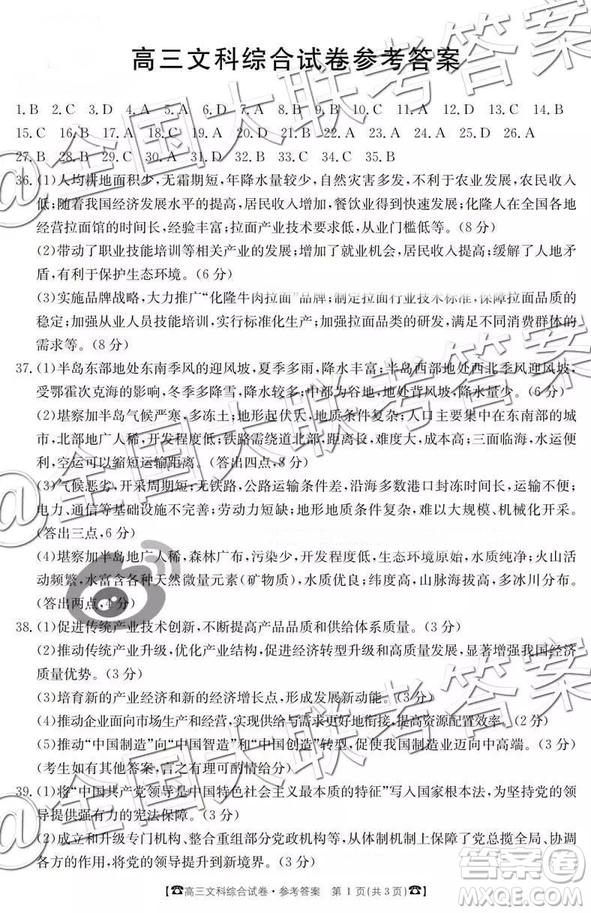 高三文科综合试卷参考答案
1.B 2.C 3.D 4.A 5.A 6.D 7.C 8.B 9.D 10.A 11.D 12.C 13.C 14.B
15.C 16.B 17.A 18.C 19.D 20.A 21.B 22.D 23.A 24.D 25.D 26.A
27.B 28.B 29.C 30.B 31.D 32.D 33.C 34.C 35.B
36.(1)人均耕地面积少,无霜期短,年降水量较少,自然灾害多发,不利于农业发展,农民收入
低;随着我国经济发展水平的提高,农民外出务工增加,餐饮业得到快速发展;化隆人在全国各地
经营拉面馆的时间长,经验丰富;拉面产业投资少,从业门槛低等。(8分)
(2)带动了职业技能培训等相关产业的发展;增加了就业机会,居民收入提高;缓解了人地矛
盾,有利于保护生态环境。(6分)
(3)实施品牌战略,大力推广“化隆牛肉拉面”品牌;制定拉面行业技术标准,保障拉面产品质量的
稳定;加强从业人员技能培训,实施标准化生产;加强宣传;加强产品研发和创新,满足消费者的
需求等。(8分)
37.(1)半岛东部地处东南季风的迎风坡,夏季多雨,降水丰富;半岛西部地处西北季风迎风坡,
受鄂霍次克海的影响,冬季多降雪,降水较多;中部为谷地,地处背风坡,降水量少。(6分)
(2)堪察加半岛气候严寒,多冻土;地形起伏大,地质条件复杂;人口主要集中在东南部的城
市,北部地广人稀,开发程度低;铁路需绕道北部,距离长,难度大,成本高;三面临海,水运便
利,空运可以缩短运输距离。(答出四点,8分)
(3)气候恶劣,开采时间短;无铁路,公路运输条件差,沿海多数港口封冻时间长;供电、供水、
通信等基础设施不完善;劳动力短缺;地形、地质条件复杂,难以大规模、机械化开采。
(答出三点,6分)
(4)堪察加半岛地广人稀,森林广布,污染少,开发历史晚,生态环境原始,水质纯净;火山活
动频繁,水富含各种天然微量元素(矿物质),水质优良;纬度高,山脉海拔高,多冰川分布。
(答出两点,4分)
38.(1)促进传统产业技术创新,不断提高产品品质和供给体系质量。(3分)
(2)推动传统产业升级,优化产业结构,促进经济转型升级,显著增强我国经济
质量优势。(3分)
(3)培育新的产业经济和新的经济增长点,形成发展新动能。(3分)
(4)推动企业面向市场生产经营,实现供给与需求更好对接,提高资源配置效率。(2分)
(5)推动“中国制造”向“中国智造”和“中国创造”转型,促进我国制造业迈向中高端。(3分)
(考生如有其他答案,言之成理可酌情给分)
39.(1)将“中国共产党领导是中国特色社会主义最本质的特征”写入国家根本法,为坚持党的领导
提供强有力的宪法保障。(2分)
(2)成立和升级专门机构、整合重组部分党政机构等,从国家治理体系上实现党的领导体现到
各方面的作用,将党的领导提升到新境界。(3分)
高三文科综合试卷·参考答案 第1页(共3页)
@全国大联考答案
@全国大联考答案
@全国大联考答案
答案圈
MXQE.COM